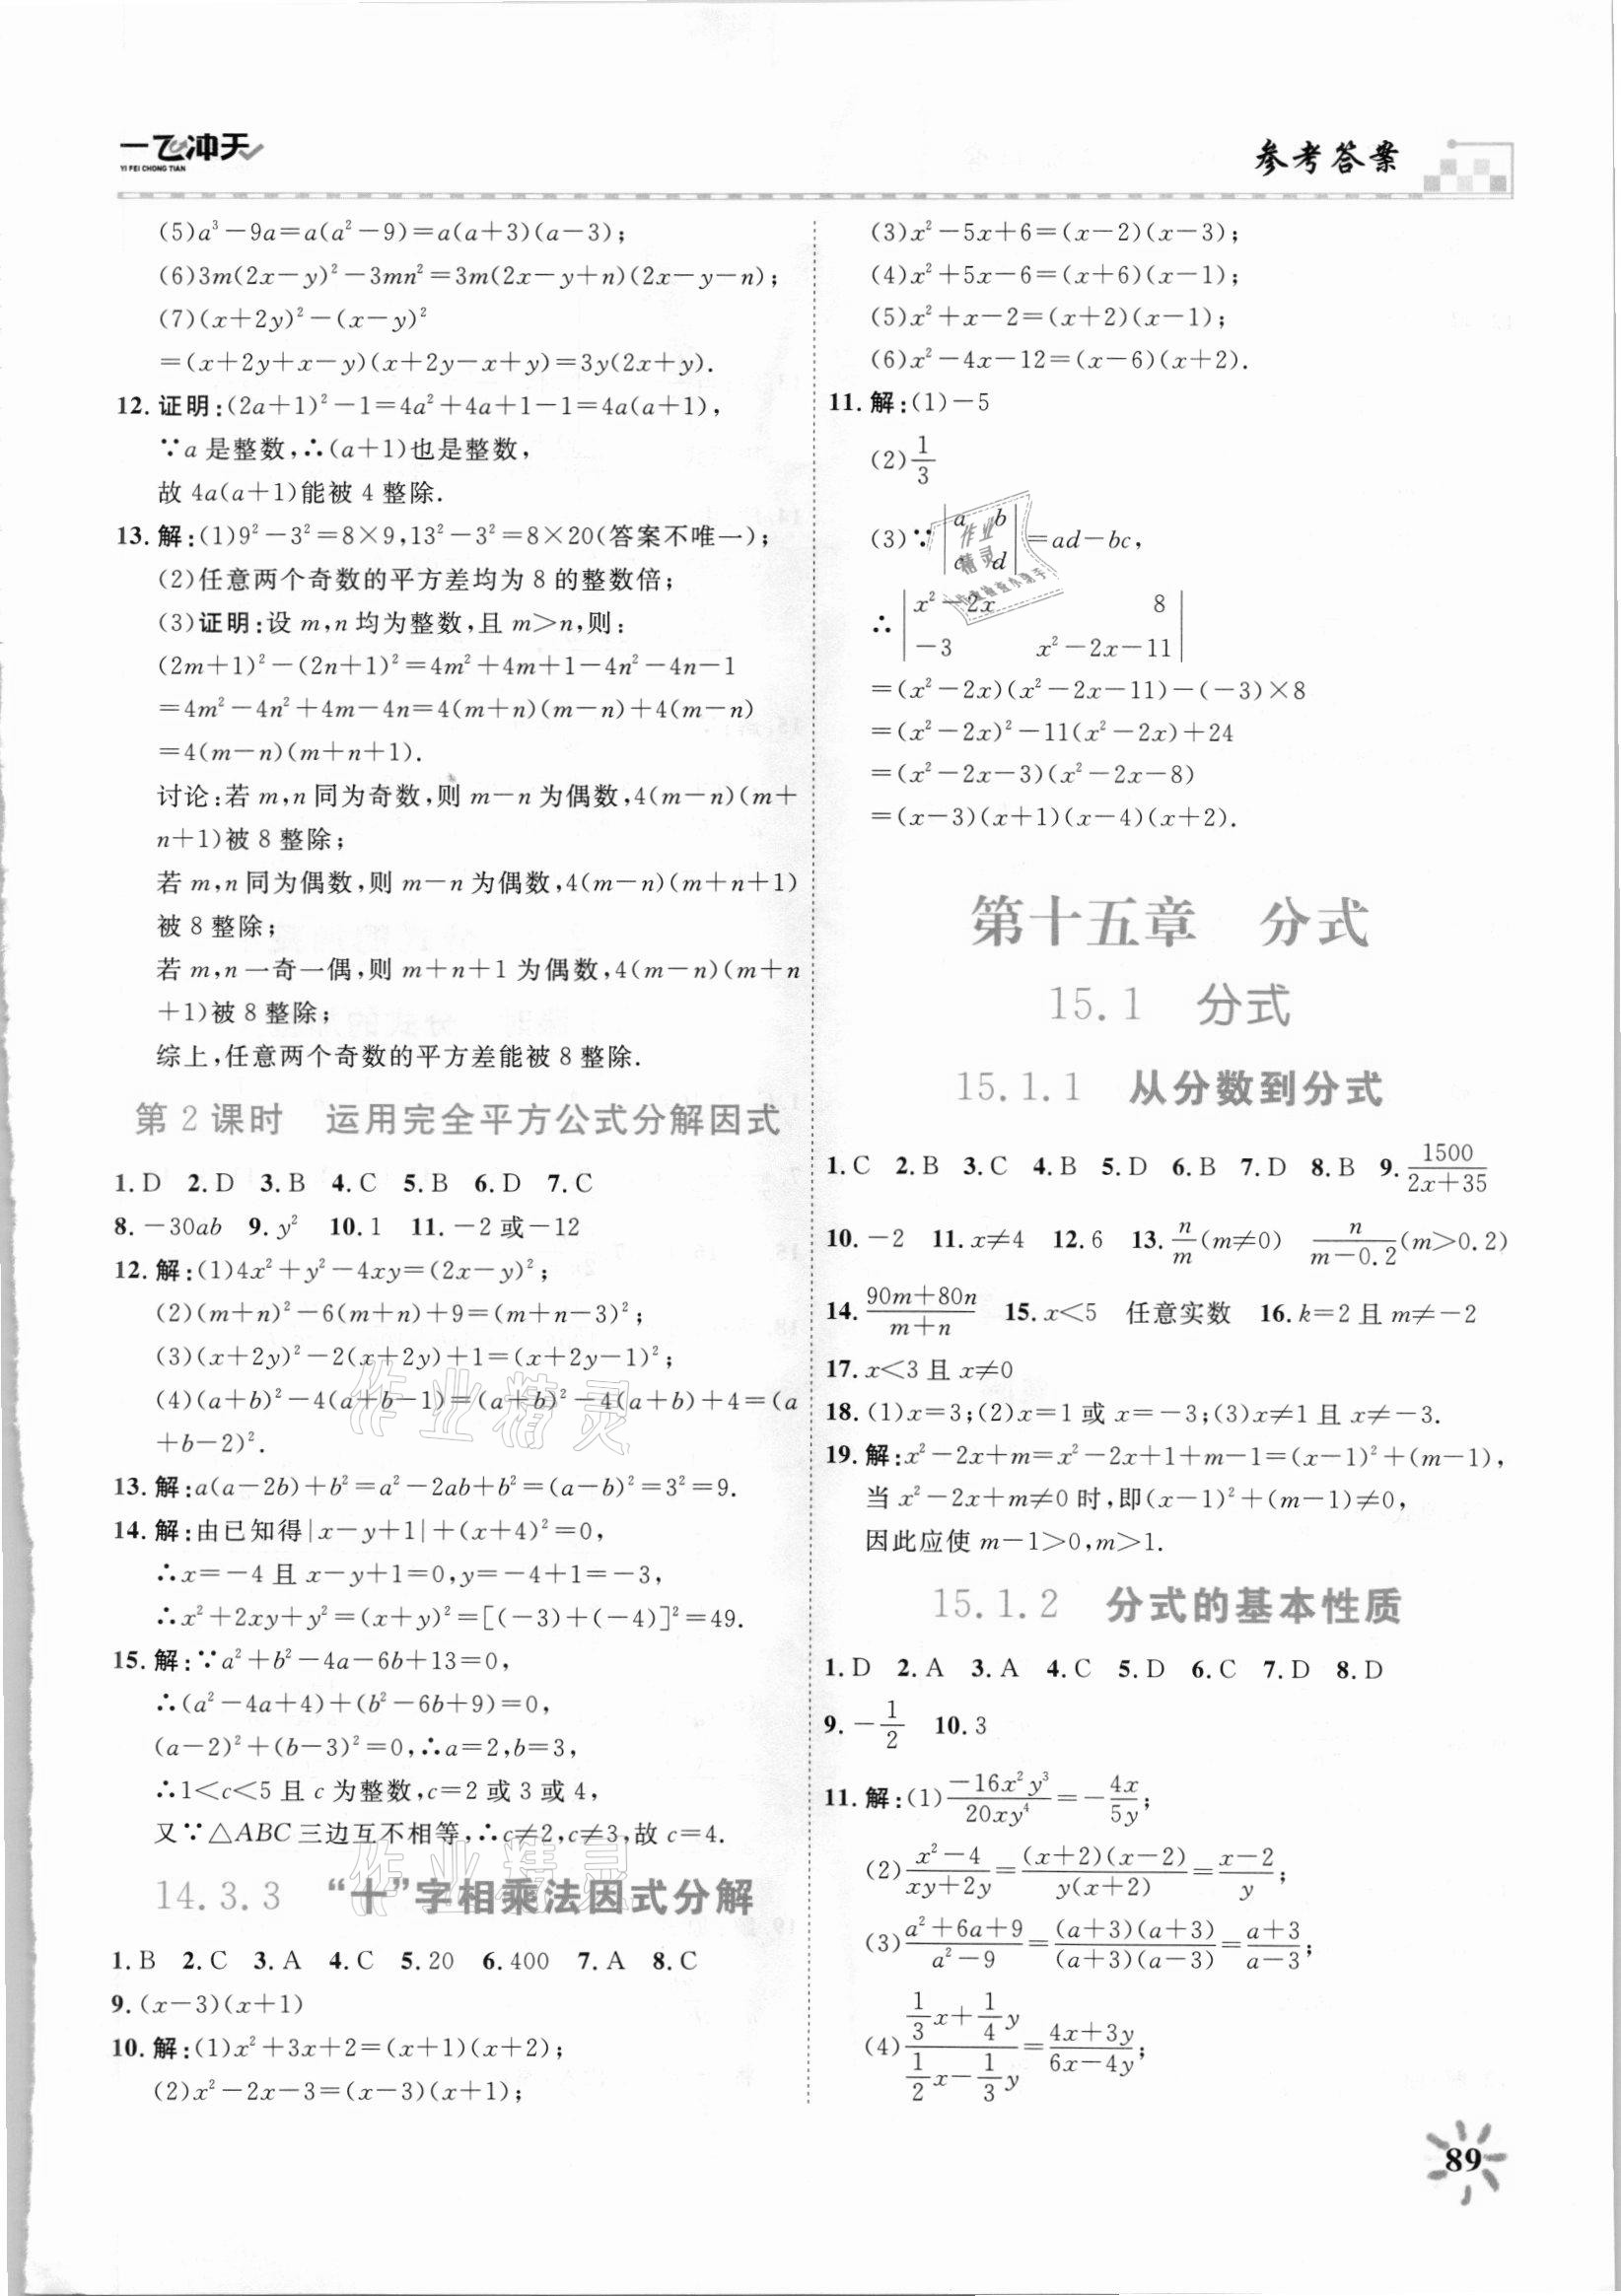 一飞冲天
YI FEI CHONG TIAN
参考答案
(5)a³－9a＝a(a²－9)＝a(a＋3)(a－3);
(6)3m(2x－y)²－3mn²＝3m(2x－y＋n)(2x－y－n);
(7)(x＋2y)²－(x－y)²
＝(x＋2y＋x－y)(x＋2y－x＋y)＝3y(2x＋y).
12.证明:(2a＋1)²－1＝4a²＋4a＋1－1＝4a(a＋1),
∵a是整数,∴(a＋1)也是整数,
故4a(a＋1)能被4整除.
13.解:(1)9²－3²＝8×9,13²－3²＝8×20(答案不唯一);
(2)任意两个奇数的平方差均为8的整数倍;
(3)证明:设m,n均为整数,且m＞n,则:
(2m＋1)²－(2n＋1)²＝4m²＋4m＋1－4n²－4n－1
＝4m²－4n²＋4m－4n＝4(m＋n)(m－n)＋4(m－n)
＝4(m－n)(m＋n＋1).
讨论:若m,n同为奇数,则m－n为偶数,4(m－n)(m＋
n＋1)被8整除;
若m,n同为偶数,则m－n为偶数,4(m－n)(m＋n＋1)
被8整除;
若m,n一奇一偶,则m＋n＋1为偶数,4(m－n)(m＋n
＋1)被8整除;
综上,任意两个奇数的平方差能被8整除.
第2课时 运用完全平方公式分解因式
1.D 2.D 3.B 4.C 5.B 6.D 7.C
8.－30ab 9.y² 10.1 11.－2或－12
12.解:(1)4x²＋y²－4xy＝(2x－y)²;
(2)(m＋n)²－6(m＋n)＋9＝(m＋n－3)²;
(3)(x＋2y)²－2(x＋2y)＋1＝(x＋2y－1)²;
(4)(a＋b)²－4(a＋b－1)＝(a＋b)²－4(a＋b)＋4＝(a
＋b－2)².
作业精灵
13.解:a(a－2b)＋b²＝a²－2ab＋b²＝(a－b)²＝3²＝9.
14.解:由已知得|x－y＋1|＋(x＋4)²＝0,
∴x＝－4且x－y＋1＝0,y＝－4＋1＝－3,
∴x²＋2xy＋y²＝(x＋y)²＝[(－3)＋(－4)]²＝49.
15.解:∵a²＋b²－4a－6b＋13＝0,
∴(a²－4a＋4)＋(b²－6b＋9)＝0,
(a－2)²＋(b－3)²＝0,∴a＝2,b＝3,
∴1＜c＜5且c为整数,c＝2或3或4,
又∵△ABC三边互不相等,∴c≠2,c≠3,故c＝4.
作业精灵
14.3.3 “十”字相乘法因式分解
1.B 2.C 3.A 4.C 5.20 6.400 7.A 8.C
9.(x－3)(x＋1)
10.解:(1)x²＋3x＋2＝(x＋1)(x＋2);
(2)x²－2x－3＝(x－3)(x＋1);
(3)x²－5x＋6＝(x－2)(x－3);
(4)x²＋5x－6＝(x＋6)(x－1);
(5)x²＋x－2＝(x＋2)(x－1);
(6)x²－4x－12＝(x－6)(x＋2).
11.解:(1)－5
(2)1/3
(3)∵|a b; c d|＝ad－bc,
作业
精灵
∴|x²－2x 8
－3 x²－2x－11|
＝(x²－2x)(x²－2x－11)－(－3)×8
＝(x²－2x)²－11(x²－2x)＋24
＝(x²－2x－3)(x²－2x－8)
＝(x－3)(x＋1)(x－4)(x＋2).
第十五章 分式
15.1 分式
15.1.1 从分数到分式
1.C 2.B 3.C 4.B 5.D 6.B 7.D 8.B 9.1500/(2x＋35)
10.－2 11.x≠4 12.6 13.n/m(m≠0) n/(m－0.2)(m＞0.2)
14.(90m＋80n)/(m＋n) 15.x＜5 任意实数 16.k＝2且m≠－2
17.x＜3且x≠0
18.(1)x＝3;(2)x＝1或x＝－3;(3)x≠1且x≠－3.
19.解:x²－2x＋m＝x²－2x＋1＋m－1＝(x－1)²＋(m－1),
当x²－2x＋m≠0时,即(x－1)²＋(m－1)≠0,
因此应使m－1＞0,m＞1.
15.1.2 分式的基本性质
1.D 2.A 3.A 4.C 5.D 6.C 7.D 8.D
9.－1/2 10.3
11.解:(1)(－16x²y³)/(20xy⁴)＝－4x/5y;
(2)(x²－4)/(xy＋2y)＝((x＋2)(x－2))/(y(x＋2))＝(x－2)/y;
(3)(a²＋6a＋9)/(a²－9)＝((a＋3)(a＋3))/((a＋3)(a－3))＝(a＋3)/(a－3);
(4)(1/3x＋1/4y)/(1/2x－1/3y)＝(4x＋3y)/(6x－4y);
89